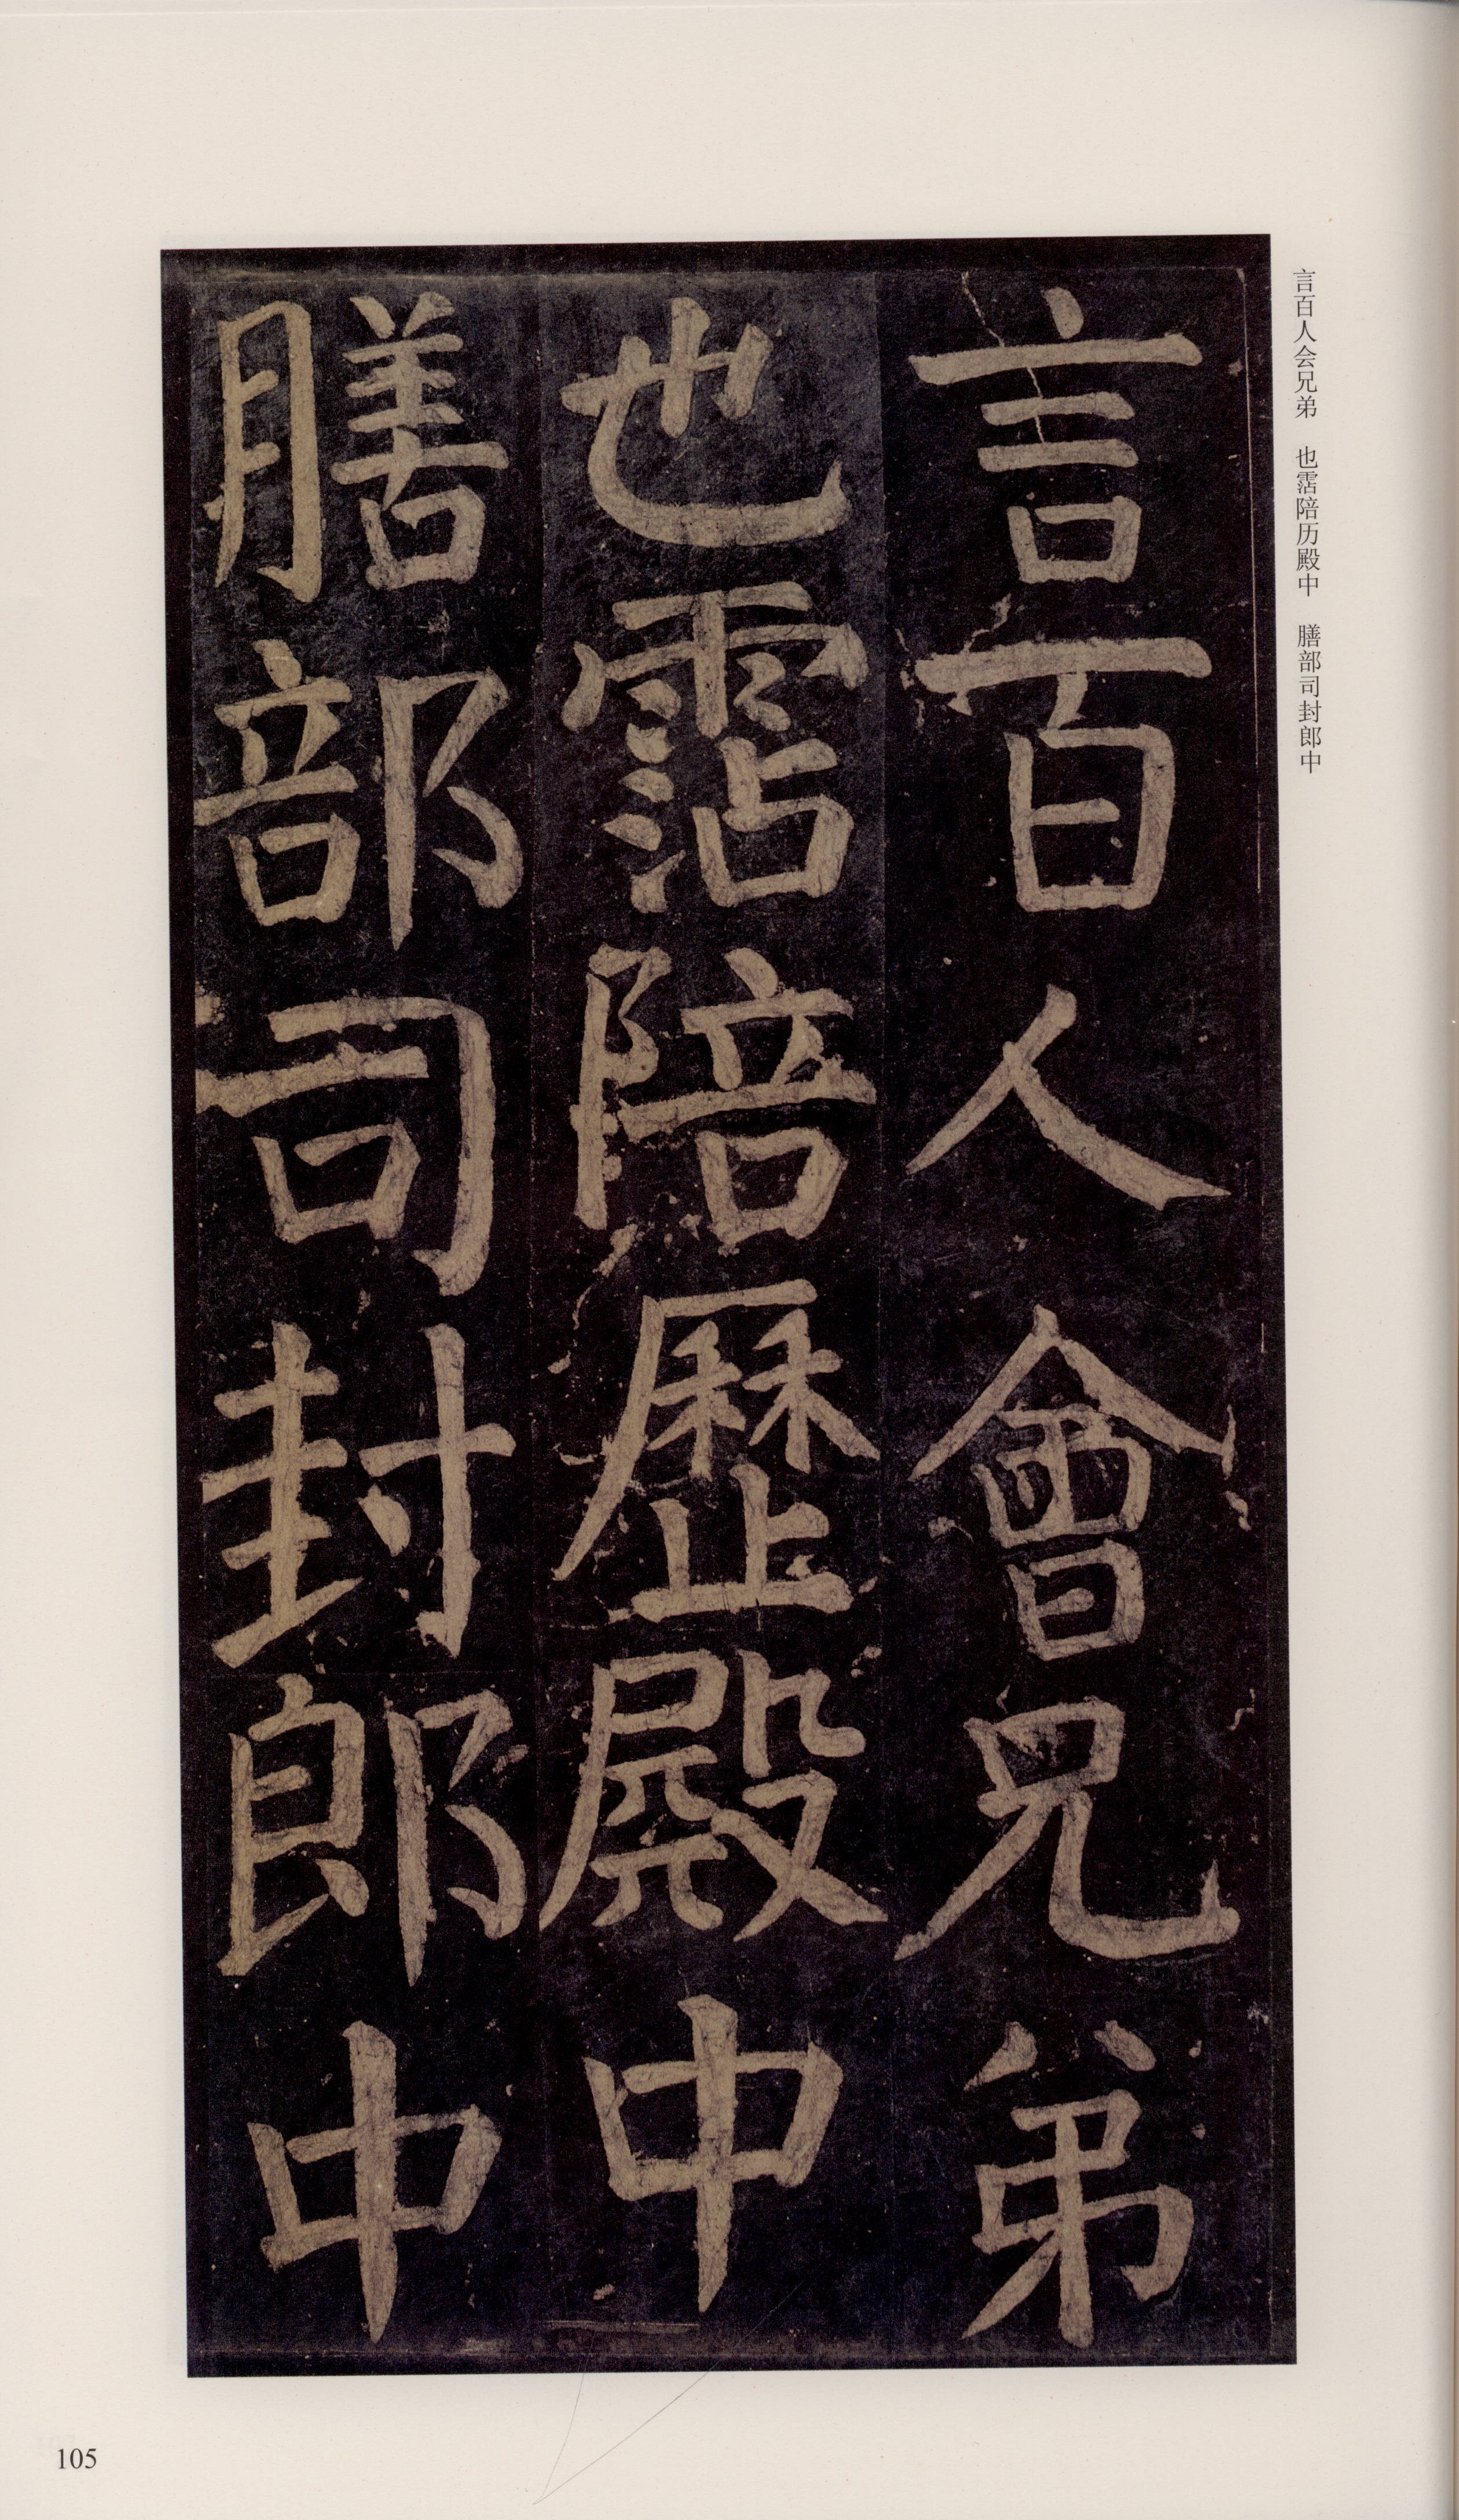 言百人会兄弟　也霑陪历殿中　膳部司封郎中
言百人會兄弟
也霑陪歷殿中
膳部司封郎中
105